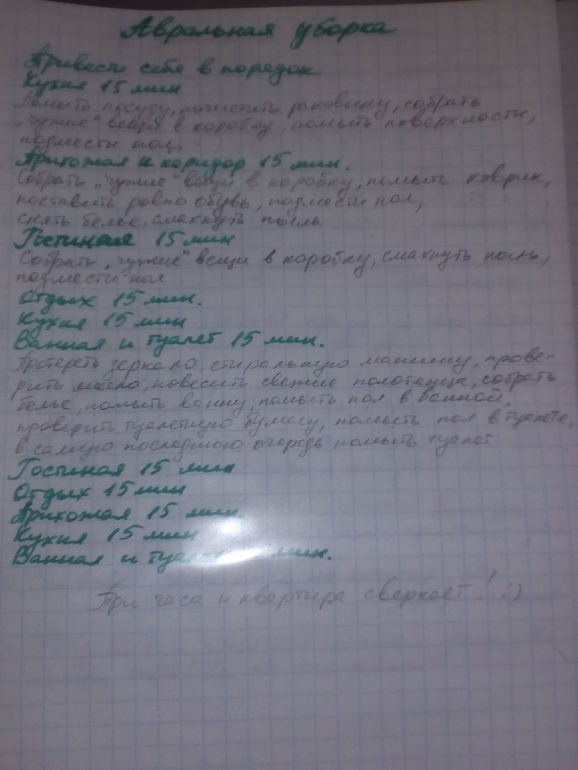 Авральная уборка
Привести себя в порядок
Кухня 15 мин
Помыть посуду, почистить раковину, собрать
"чужие" вещи в коробку, помыть поверхности,
подмести пол,
Прихожая и коридор 15 мин.
Собрать "чужие" вещи в коробку, помыть коврик,
поставить ровно обувь, подмести пол,
снять белье, смахнуть пыль
Гостиная 15 мин
Собрать "чужие" вещи в коробку, смахнуть пыль,
подмести пол
Отдых 15 мин.
Кухня 15 мин
Ванная и туалет 15 мин.
Протереть зеркало, стиральную машину, прове-
рить мыло, повесить свежие полотенца, собрать
белье, помыть ванну, помыть пол в ванной,
проверить туалетную бумагу, помыть пол в туалете,
в самую последнюю очередь помыть туалет
Гостиная 15 мин
Отдых 15 мин
Прихожая 15 мин.
Кухня 15 мин
Ванная и туалет мин.
Три часа и квартира сверкает! :)